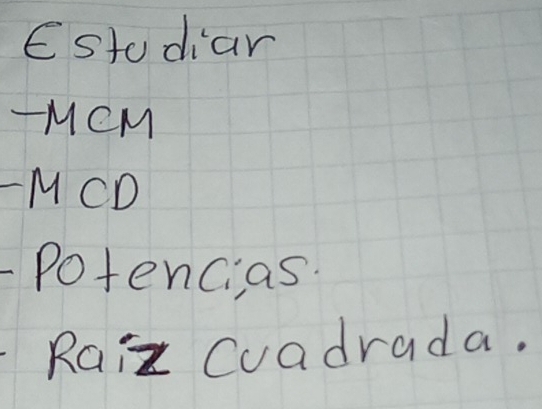 Estudiar
-MCM
-MCD
- Potencias.
- Raiz Cuadrada.